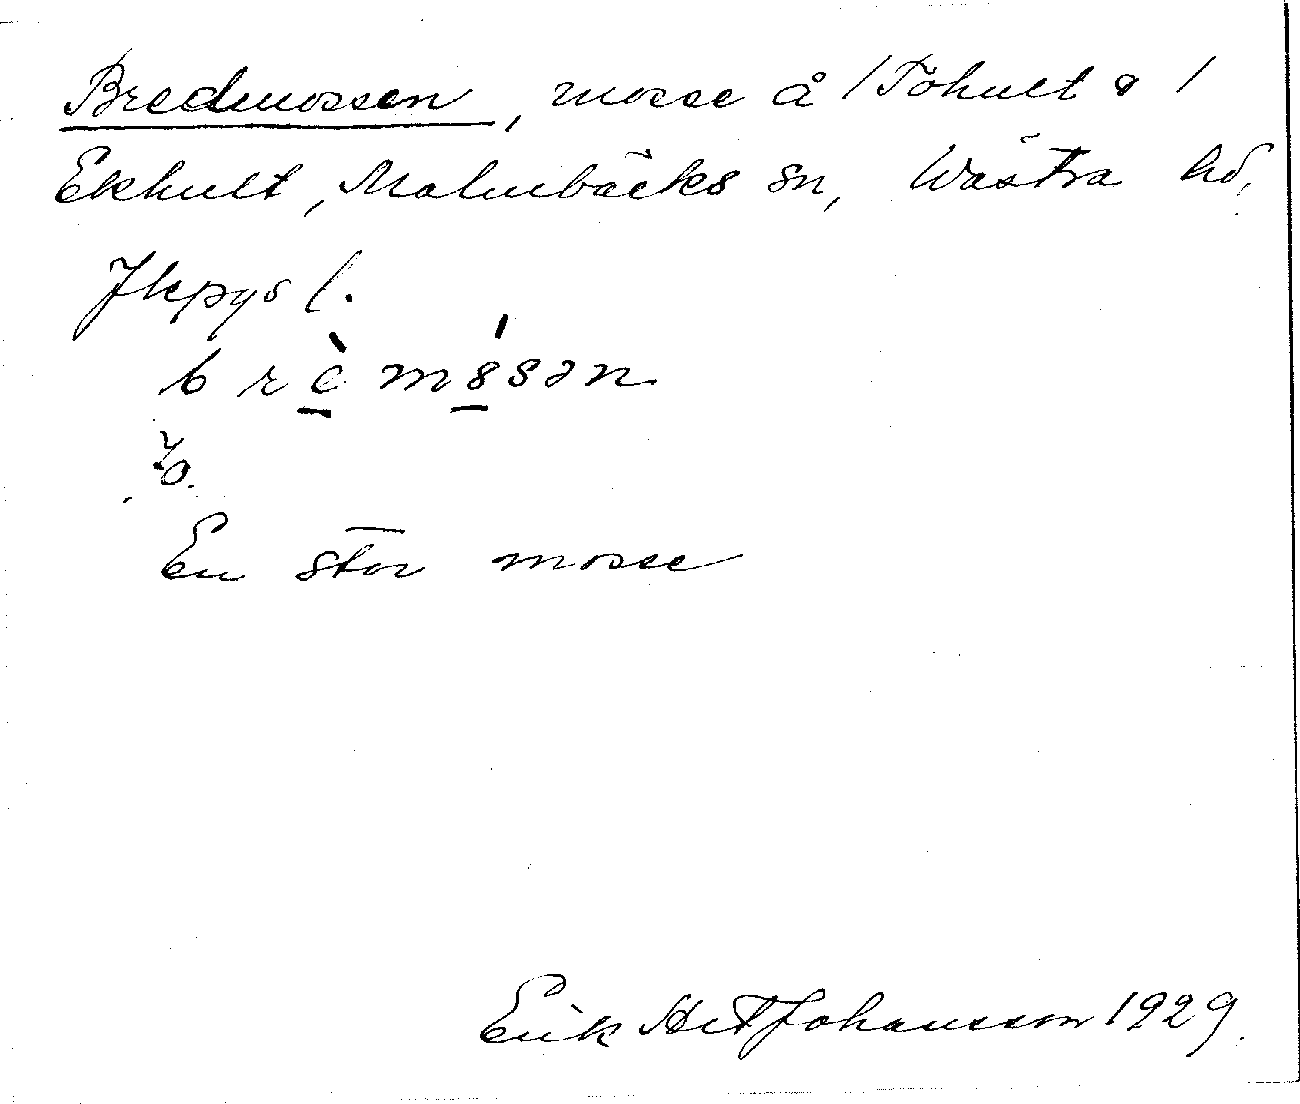 Bredmossen, mosse å /Töhult o /
Ekhult, Malmbäcks sn, Västra hd,
Jkpgs l.
brèmósən
En stor mosse
Erik Johansson 1929.